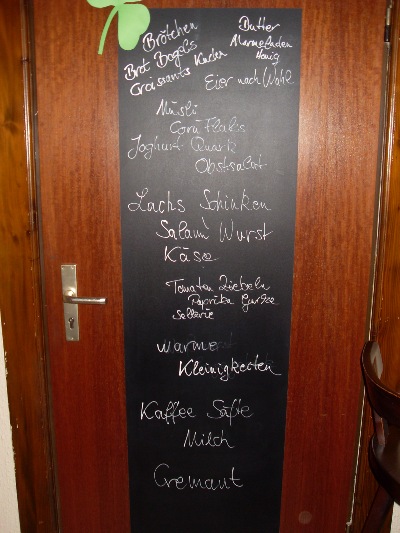 Brötchen
Butter
Brot Bagels
Marmeladen
Honig
Croissants Kuchen
Eier nach Wahl
Müsli
Cornflakes
Joghurt Quark
Obstsalat
Lachs Schinken
Salami Wurst
Käse
Tomaten Zwiebeln
Paprika Gurke
Sellerie
warme
Kleinigkeiten
Kaffee Säfte
Milch
Cremant